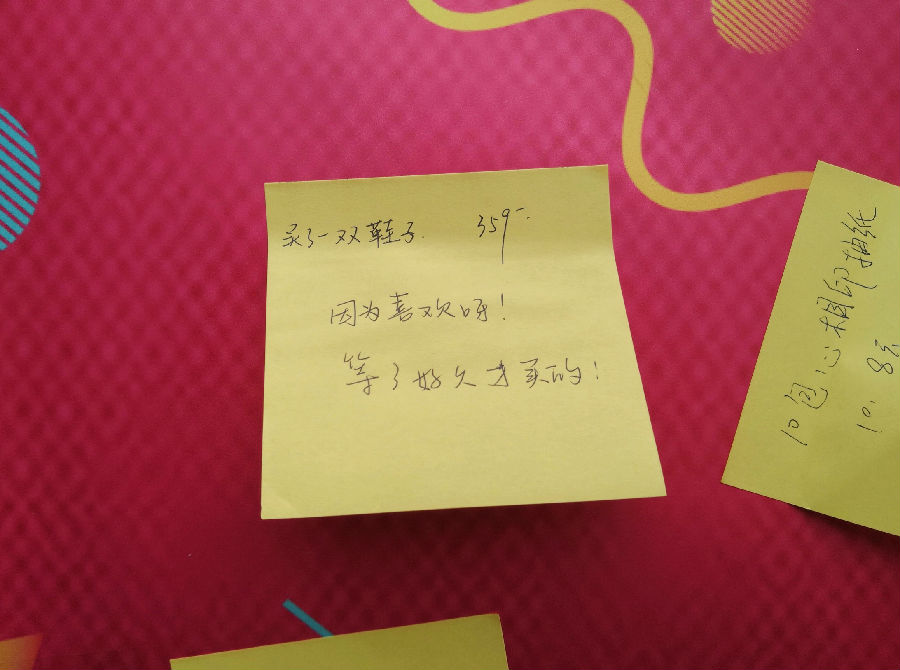 买了一双鞋子. 359-.
因为喜欢呀!
等了好久才买的!
10包心相印抽纸
10.8元